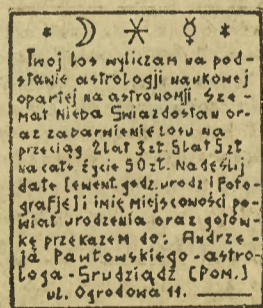 Twój los wyliczam na pod-
stawie astrologji naukowej
opartej na astronomji. Sze-
mat Nieba Gwiazdostan or-
az zabarwienie losu na
przeciąg 2 lat 3 zł. 5 lat 5 zł
na całe życie 50 zł. Nadeślij
datę (ewent. godz. urodz. i foto-
grafję) i imię miejscowości po-
wiat urodzenia oraz gotów-
kę przekazem do: Andrze-
ja Pawłowskiego - astro-
loga - Grudziądz (Pom.)
ul. Ogrodowa 11.